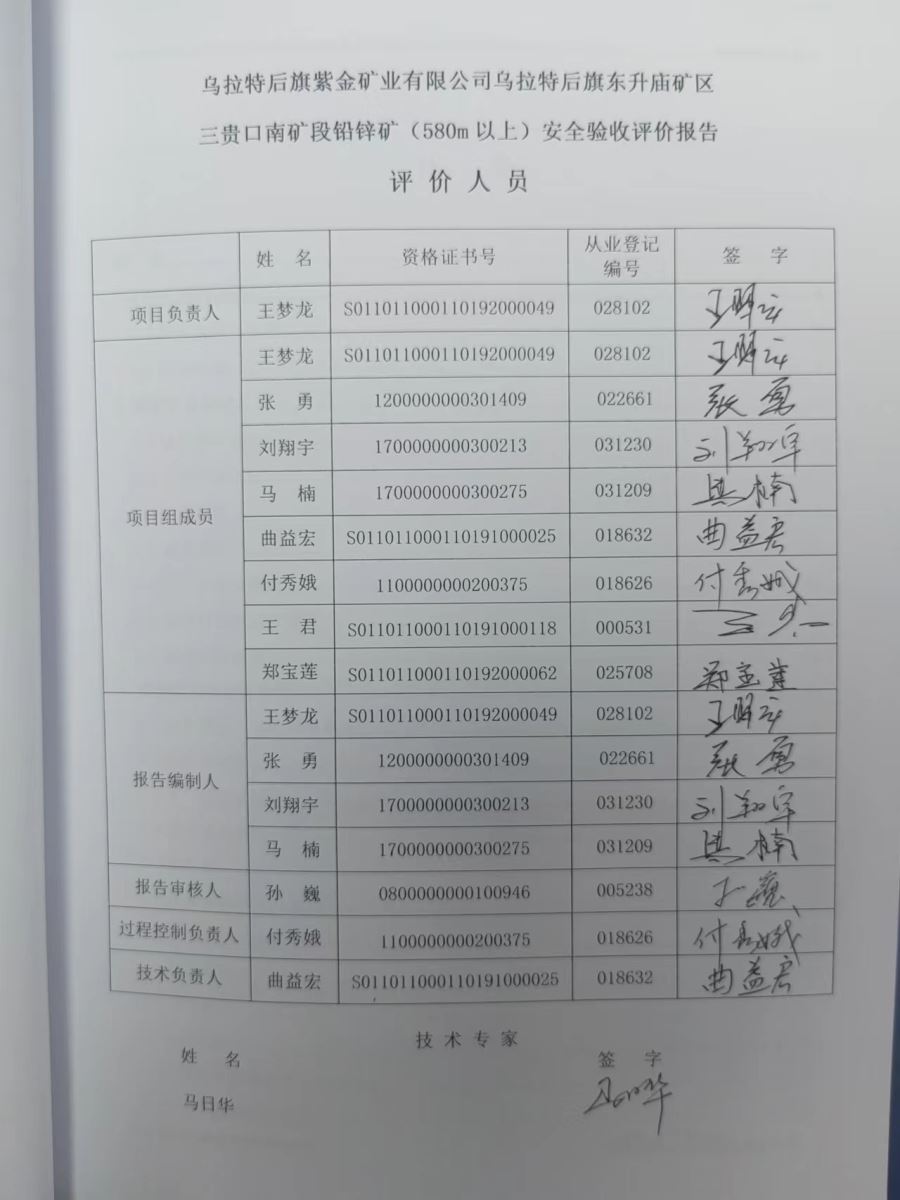 乌拉特后旗紫金矿业有限公司乌拉特后旗东升庙矿区
三贵口南矿段铅锌矿（580m以上）安全验收评价报告
评价人员
姓 名 资格证书号 从业登记编号 签 字
项目负责人 王梦龙 S011011000110192000049 028102
项目组成员
王梦龙 S011011000110192000049 028102
张 勇 1200000000301409 022661 张勇
刘翔宇 1700000000300213 031230 刘翔宇
马 楠 1700000000300275 031209 马楠
曲益宏 S011011000110191000025 018632 曲益宏
付秀娥 1100000000200375 018626 付秀娥
王 君 S011011000110191000118 000531
郑宝莲 S011011000110192000062 025708 郑宝莲
报告编制人
王梦龙 S011011000110192000049 028102
张 勇 1200000000301409 022661 张勇
刘翔宇 1700000000300213 031230 刘翔宇
马 楠 1700000000300275 031209 马楠
报告审核人 孙 巍 0800000000100946 005238 孙巍
过程控制负责人 付秀娥 1100000000200375 018626 付秀娥
技术负责人 曲益宏 S011011000110191000025 018632 曲益宏
技术专家
姓 名 签 字
马日华 马日华